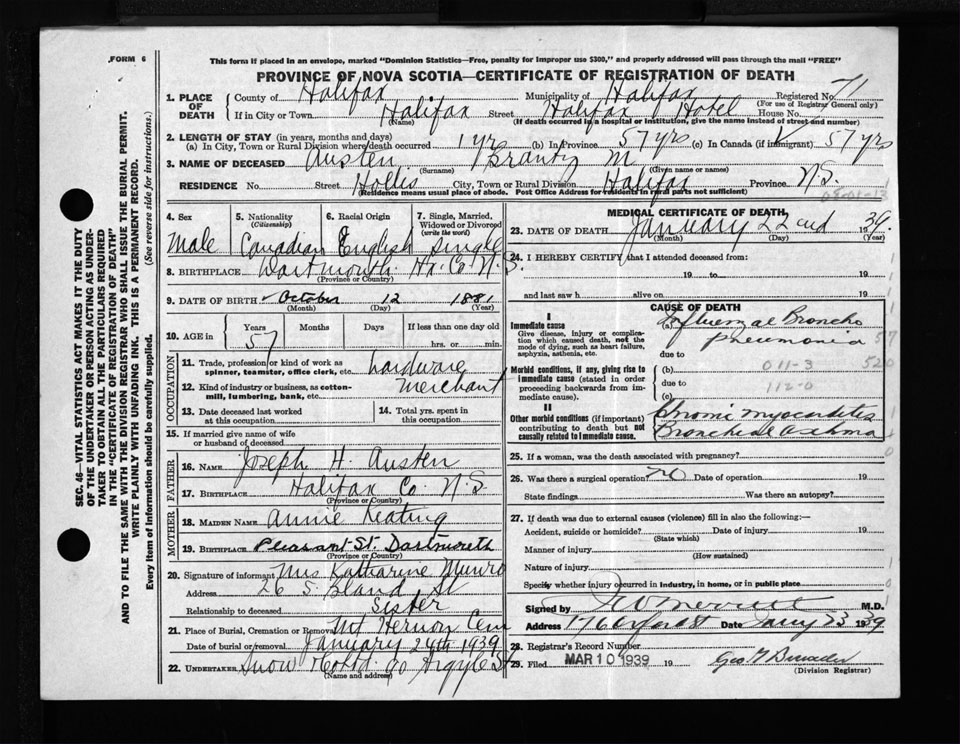 FORM 6
This form if placed in an envelope, marked "Dominion Statistics—Free, penalty for improper use $300," and properly addressed will pass through the mail "FREE"
PROVINCE OF NOVA SCOTIA—CERTIFICATE OF REGISTRATION OF DEATH
1. PLACE OF DEATH County of Halifax Municipality of Halifax Registered No. 71
(For use of Registrar General only)
If in City or Town Halifax Street Halifax Hotel House No.
(Name) (If death occurred in a hospital or institution, give the name instead of street and number)
2. LENGTH OF STAY (in years, months and days)
(a) In City, Town or Rural Division where death occurred 1 yr (b) In Province 57 yrs (c) In Canada (if immigrant) 57 yrs
3. NAME OF DECEASED Austen M
(Surname) (Given name or names)
RESIDENCE No. Street Hollis City, Town or Rural Division Halifax Province N.S.
(Residence means usual place of abode. Post Office Address for residents in rural parts not sufficient)
4. Sex 5. Nationality (Citizenship) 6. Racial Origin 7. Single, Married, Widowed or Divorced (write the word)
Male Canadian English Single
8. BIRTHPLACE Dartmouth Hx. Co. N.S.
(Province or Country)
9. DATE OF BIRTH October 12 1881
(Month) (Day) (Year)
10. AGE in Years Months Days If less than one day old
57 hrs. or min.
OCCUPATION
11. Trade, profession or kind of work as spinner, teamster, office clerk, etc. hardware
12. Kind of industry or business, as cotton-mill, lumbering, bank, etc. Merchant
13. Date deceased last worked at this occupation
14. Total yrs. spent in this occupation
15. If married give name of wife or husband of deceased
FATHER
16. NAME Joseph H. Austen
17. BIRTHPLACE Halifax Co. N.S.
(Province or Country)
MOTHER
18. MAIDEN NAME Annie Keating
19. BIRTHPLACE Pleasant St. Dartmouth
(Province or Country)
20. Signature of informant Mrs Katharine Munro
Address 26 S. Bland St
Relationship to deceased Sister
21. Place of Burial, Cremation or Removal Mt Hermon Cem
Date of burial or removal January 24th 1939
22. UNDERTAKER Snow & Co Argyle St
(Name and address)
MEDICAL CERTIFICATE OF DEATH
23. DATE OF DEATH January 22nd 1939.
(Month) (Day) (Year)
24. I HEREBY CERTIFY that I attended deceased from:
19 to 19
and last saw h alive on 19
CAUSE OF DEATH
I
Immediate cause (a) Influenzal Broncho pneumonia
Give disease, injury or complication which caused death, not the mode of dying, such as heart failure, asphyxia, asthenia, etc.
due to
Morbid conditions, if any, giving rise to immediate cause (stated in order proceeding backwards from immediate cause).
(b) 011-3
due to 112-0
(c)
II
Other morbid conditions (if important) contributing to death but not causally related to immediate cause.
Chronic myocarditis
Bronchial Asthma
25. If a woman, was the death associated with pregnancy?
26. Was there a surgical operation? No Date of operation 19
State findings Was there an autopsy?
27. If death was due to external causes (violence) fill in also the following:—
Accident, suicide or homicide? Date of injury 19
(State which)
Manner of injury
(How sustained)
Nature of injury
Specify whether injury occurred in industry, in home, or in public place
Signed by M.D.
Address 176 Oxford St Date Jany 23 1939
28. Registrar's Record Number
29. Filed MAR 10 1939 19
(Division Registrar)
SEC. 46—VITAL STATISTICS ACT MAKES IT THE DUTY OF THE UNDERTAKER OR PERSON ACTING AS UNDERTAKER TO OBTAIN ALL THE PARTICULARS REQUIRED IN THE "CERTIFICATE OF REGISTRATION OF DEATH" AND TO FILE THE SAME WITH THE DIVISION REGISTRAR WHO SHALL ISSUE THE BURIAL PERMIT.
WRITE PLAINLY WITH UNFADING INK. THIS IS A PERMANENT RECORD.
Every item of information should be carefully supplied. (See reverse side for instructions.)